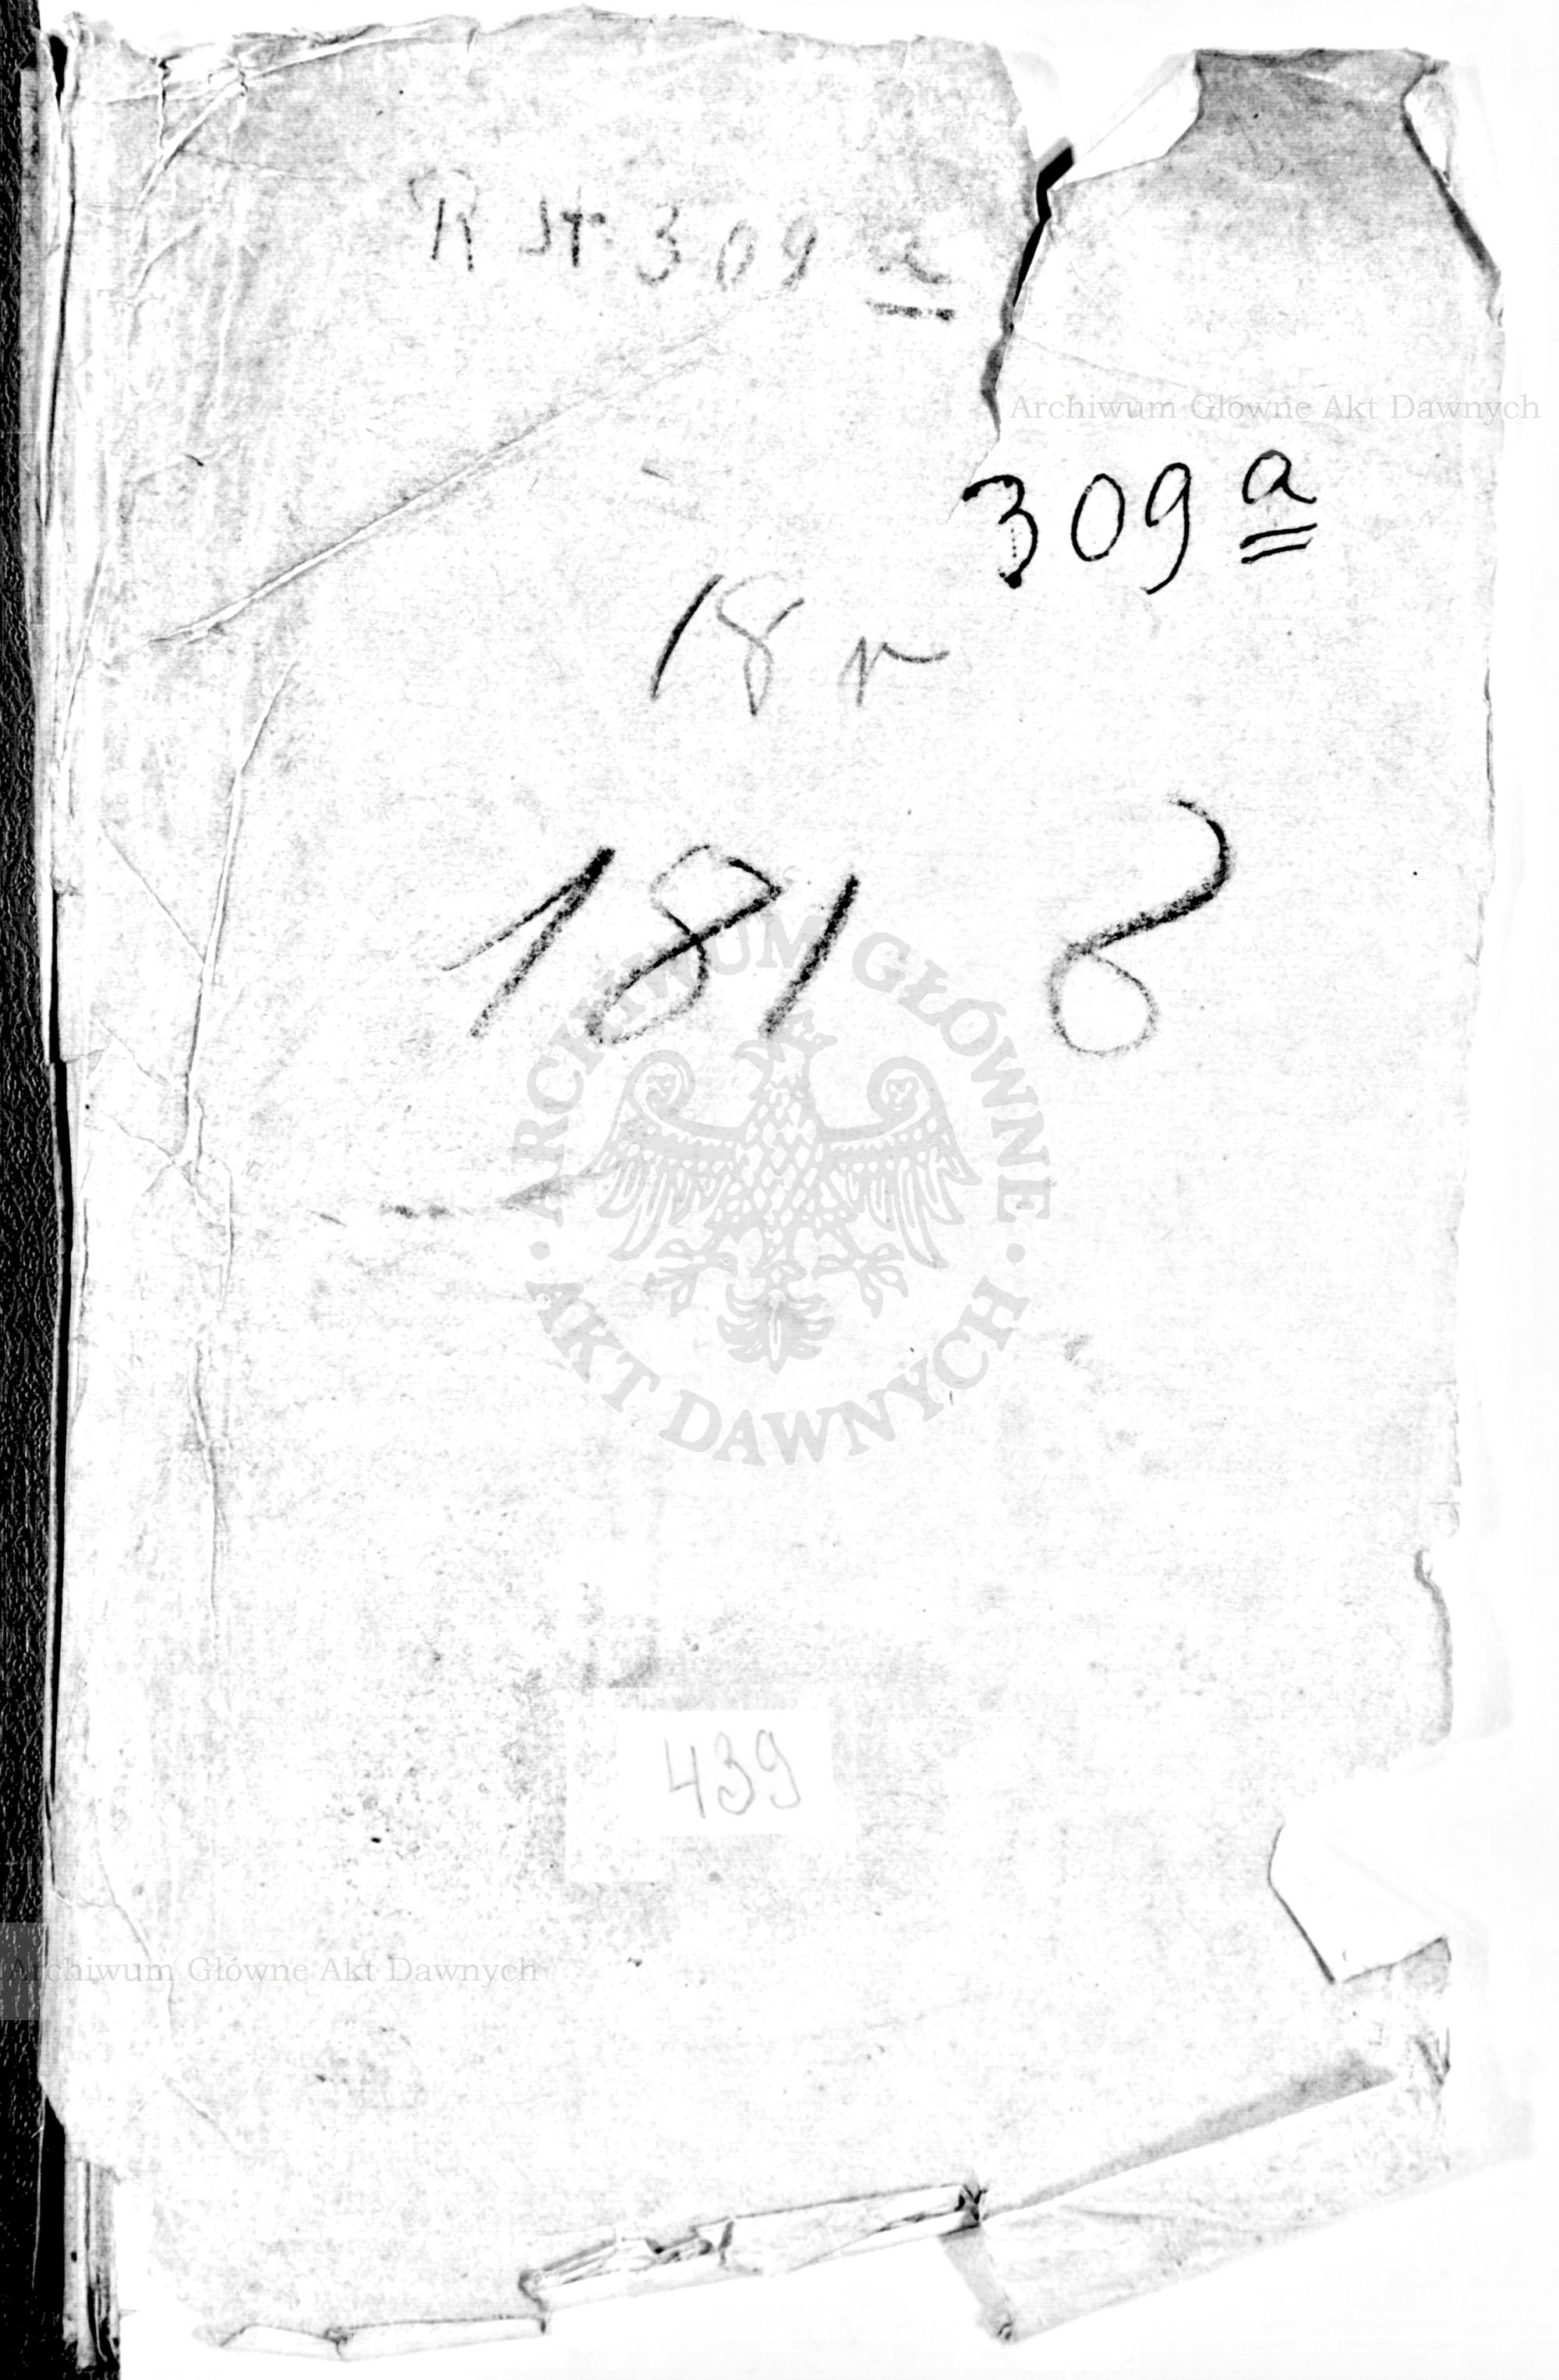 R st 309 a
Archiwum Główne Akt Dawnych
309 a
18 r
181 8
ARCHIWUM GŁÓWNE
AKT DAWNYCH
439
Archiwum Główne Akt Dawnych